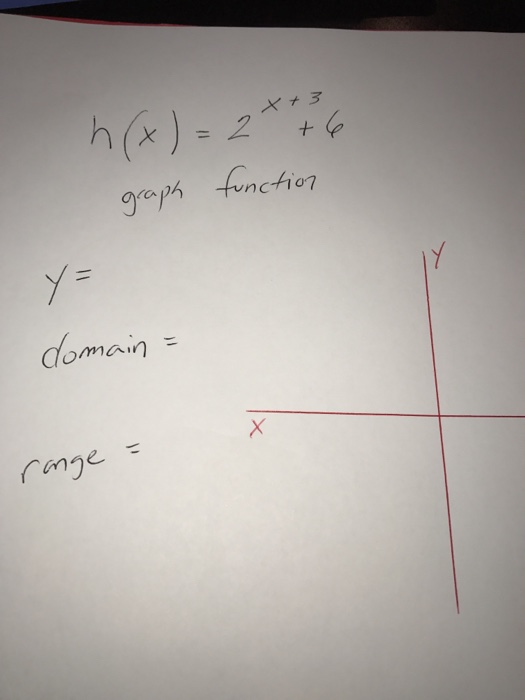 h(x) = 2^(x+3) + 6
graph function
y =
domain =
range =
Y
X